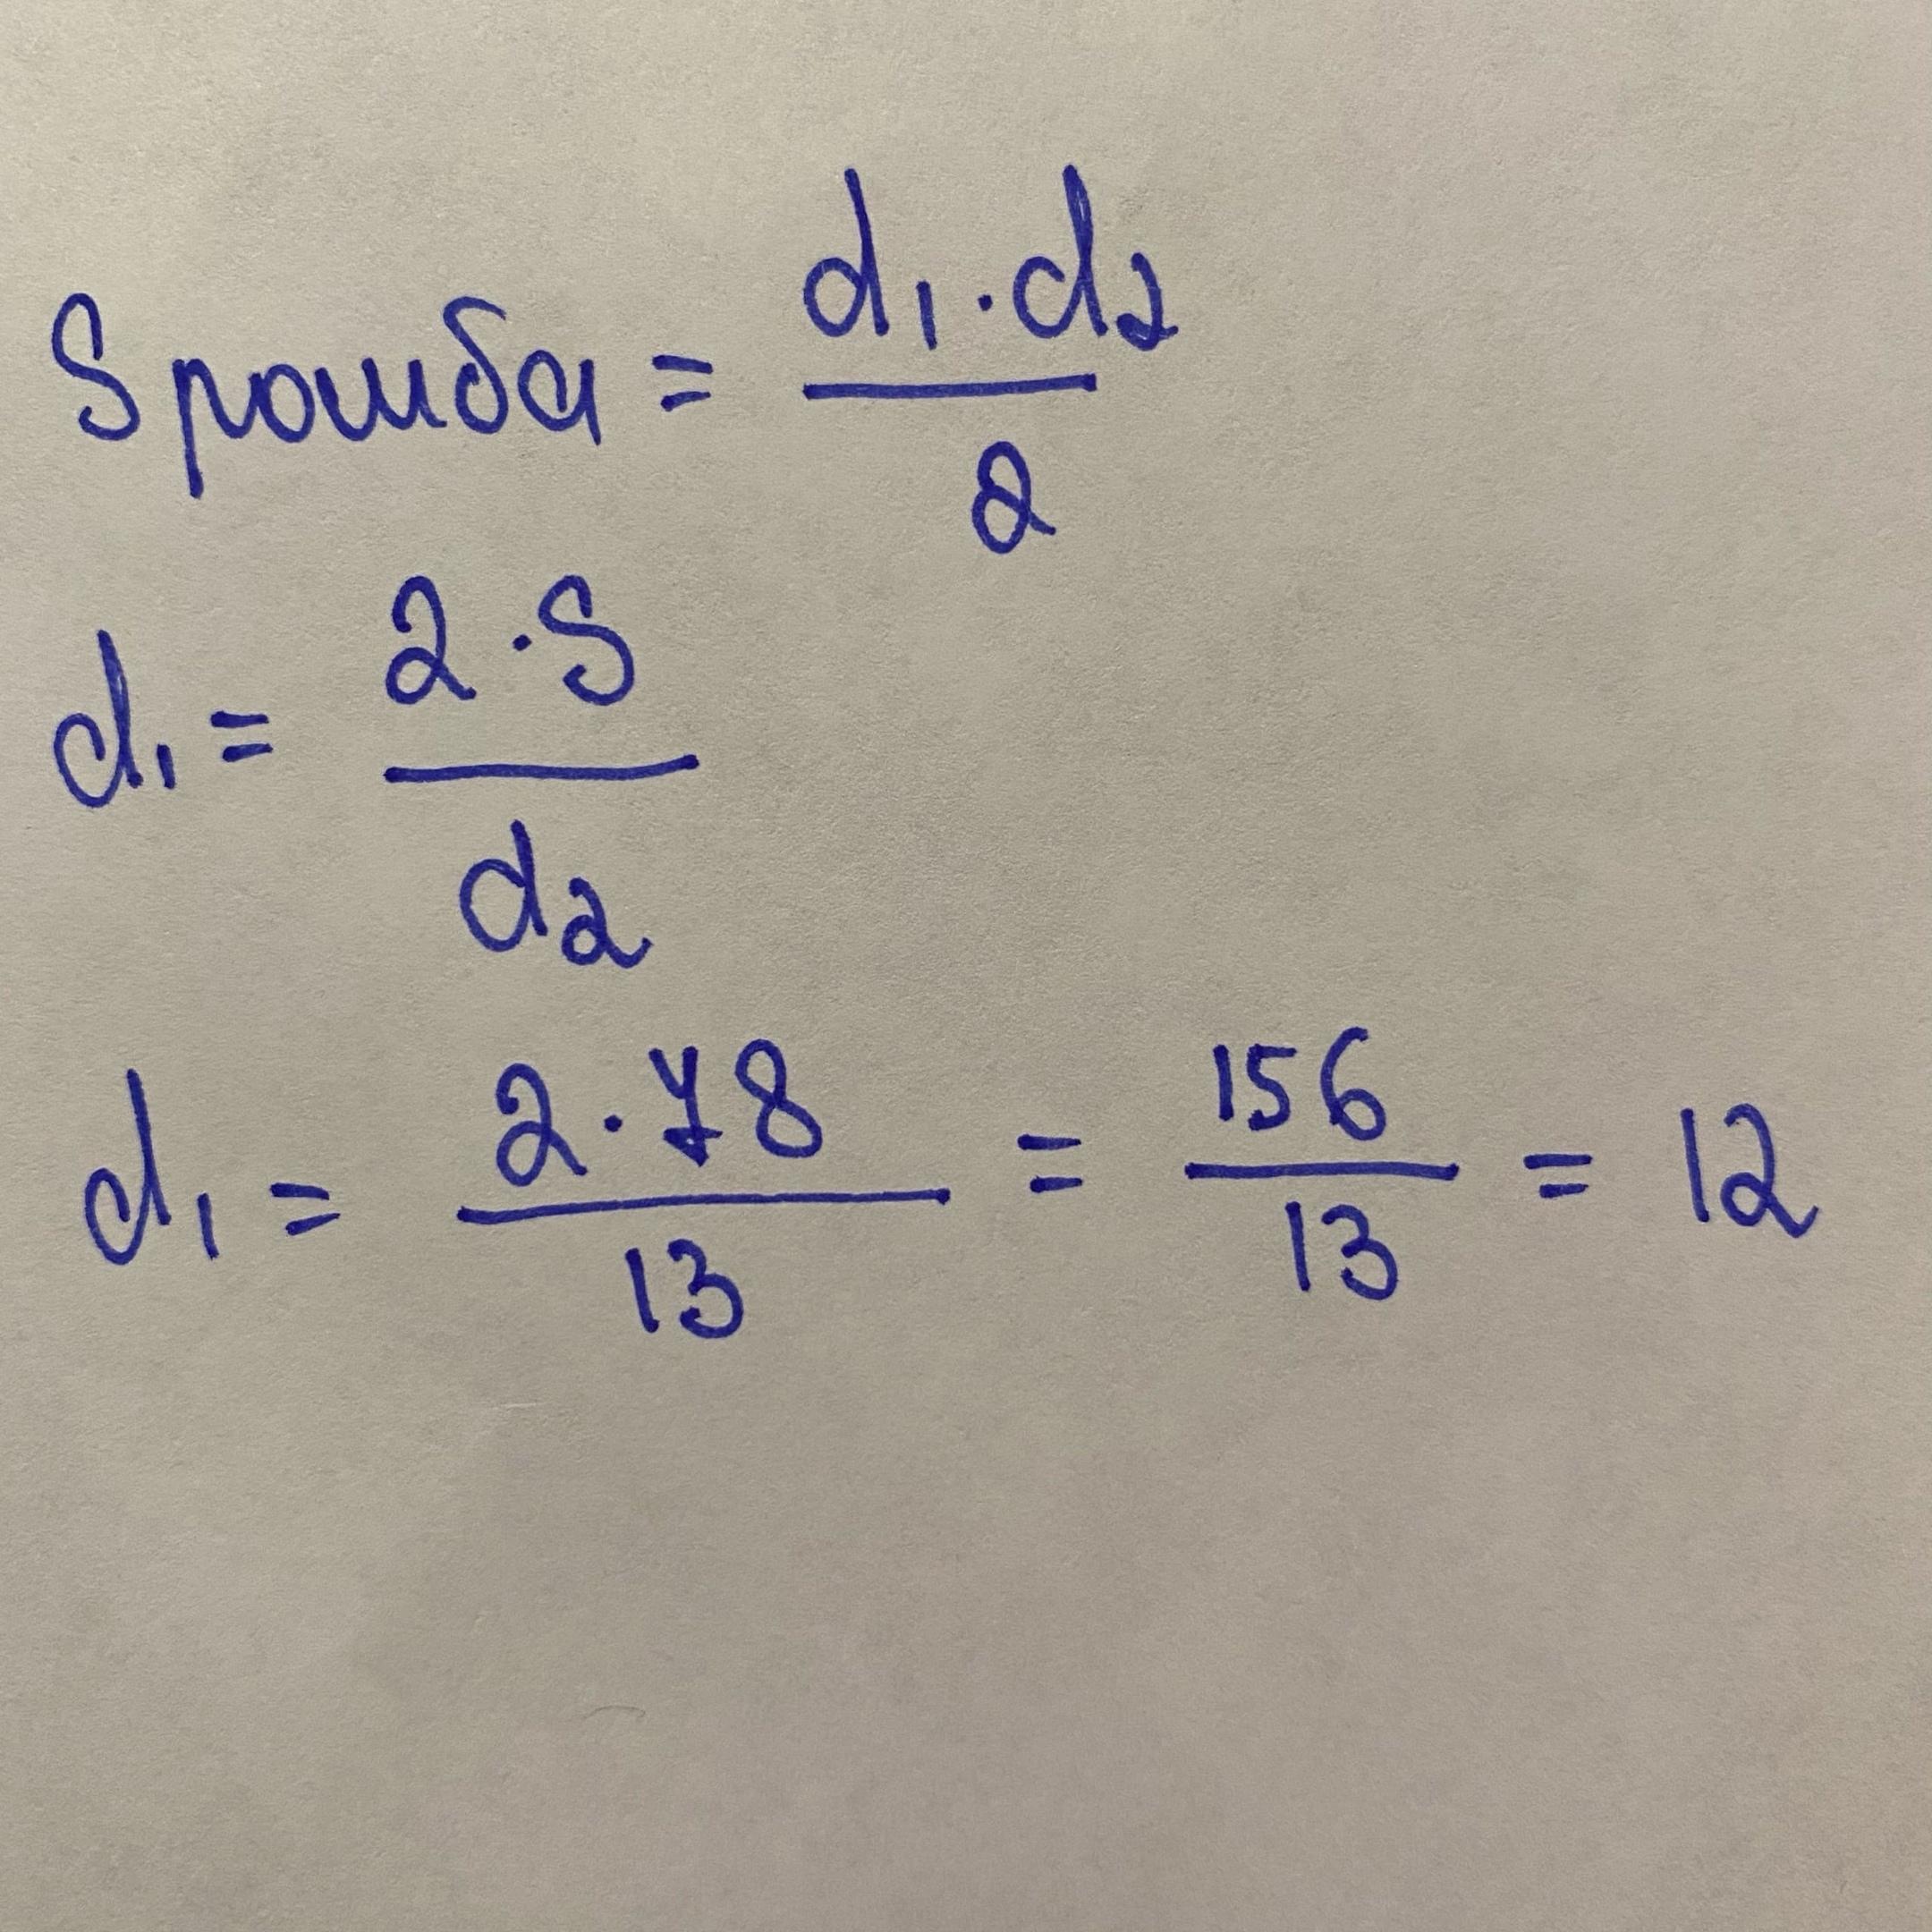 S ромба = d₁·d₂ / 2
d₁ = 2·S / d₂
d₁ = 2·78 / 13 = 156 / 13 = 12